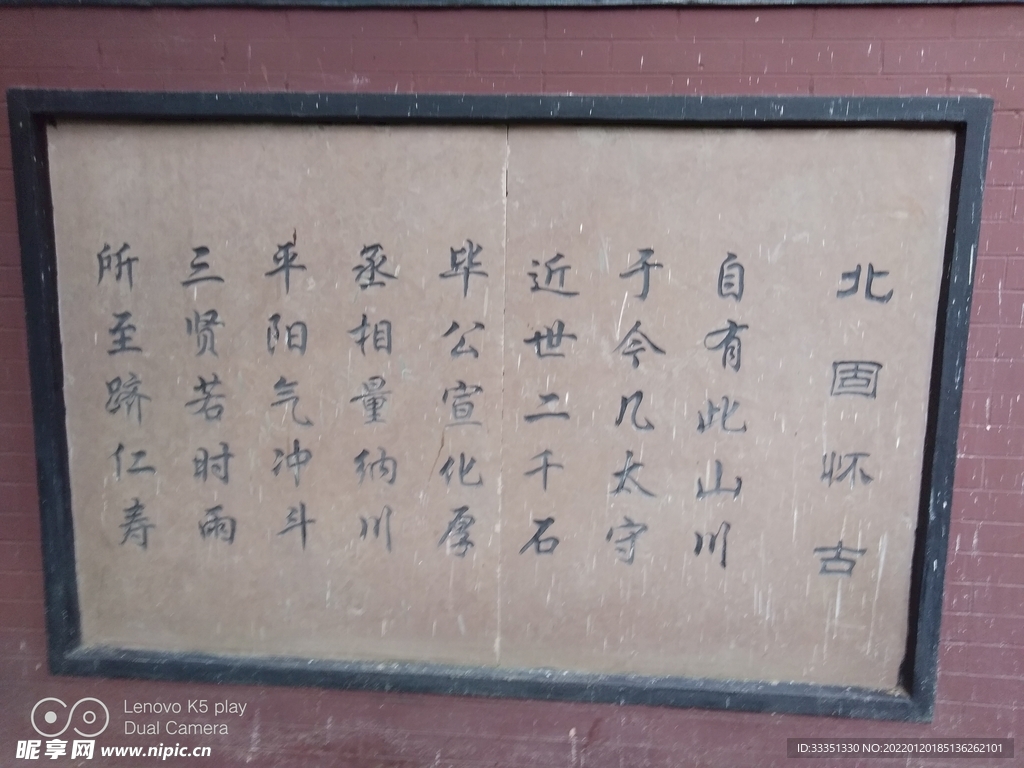 北固怀古
自有此山川
于今几太守
近世二千石
毕公宣化厚
丞相量纳川
平阳气冲斗
三贤若时雨
所至跻仁寿
Lenovo K5 play
Dual Camera
昵享网 www.nipic.cn
ID:33351330 NO:20220120185136262101